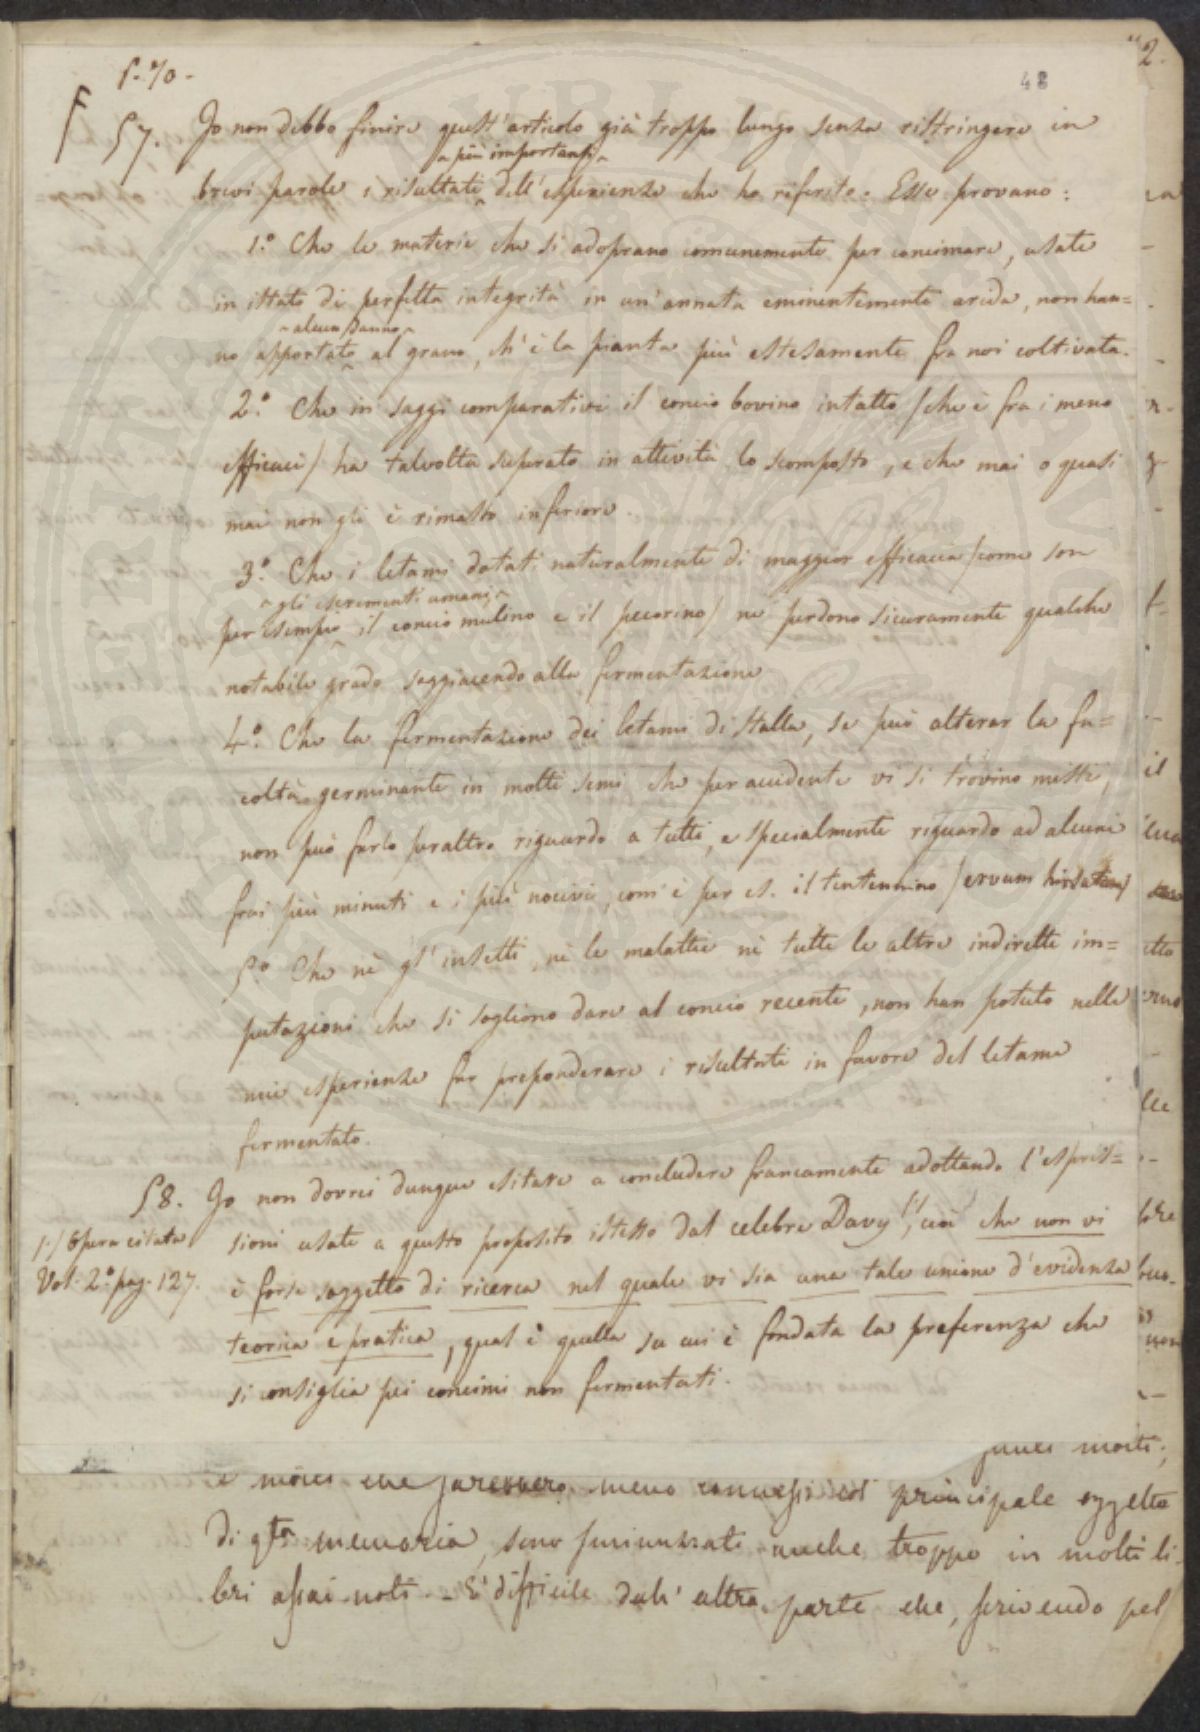 p. 70.
48
2.
§7. Io non debbo finire quest'articolo già troppo lungo senza ristringere in
^più importanti^
brevi parole i risultati dell'esperienze che ho riferite. Esse provano:
1.° Che le materie che si adoprano comunemente per concimare, usate
in istato di perfetta integrità in un'annata eminentemente arida, non han=
^alcun danno^
no apportato al grano, ch'è la pianta più estesamente fra noi coltivata.
2.° Che in saggi comparativi il concio bovino intatto /che è fra i meno
efficaci/ ha talvolta superato in attività lo scomposto, e che mai o quasi
mai non gli è rimasto inferiore.
3.° Che i letami dotati naturalmente di maggior efficacia /come son
^gli escrementi umani,^
per esempio il concio mulino e il pecorino/ ne perdono sicuramente qualche
notabile grado soggiacendo alla fermentazione
4.° Che la fermentazione dei letami di stalla, se può alterar la fa=
coltà germinante in molti semi che per accidente vi si trovino misti,
non può farlo peraltro riguardo a tutti, e specialmente riguardo ad alcuni
frai più minuti e i più nocivi, com'è per es. il tentennino /ervum hirsutum/
5.° Che nè gl'insetti, nè le malattie nè tutte le altre indirette im=
putazioni che si sogliono dare al concio recente, non han potuto nelle
mie esperienze far preponderare i risultati in favore del letame
fermentato.
§8. Io non dovrei dunque esitare a concludere francamente adottando l'espres=
sioni usate a questo proposito istesso dal celebre Davy (1), cioè che non vi
è forse soggetto di ricerca nel quale vi sia una tale unione d'evidenza
teorica e pratica, qual è quella su cui è fondata la preferenza che
si consiglia pei concimi non fermentati.
1·/ Opera citata
Vol. 2.° pag. 127.
molti;
e che sarebbero meno connessi col principale oggetto
di qta memoria, sono anche troppo in molti li-
bri assai noti. - E' difficile dall'altra parte che, scrivendo pel